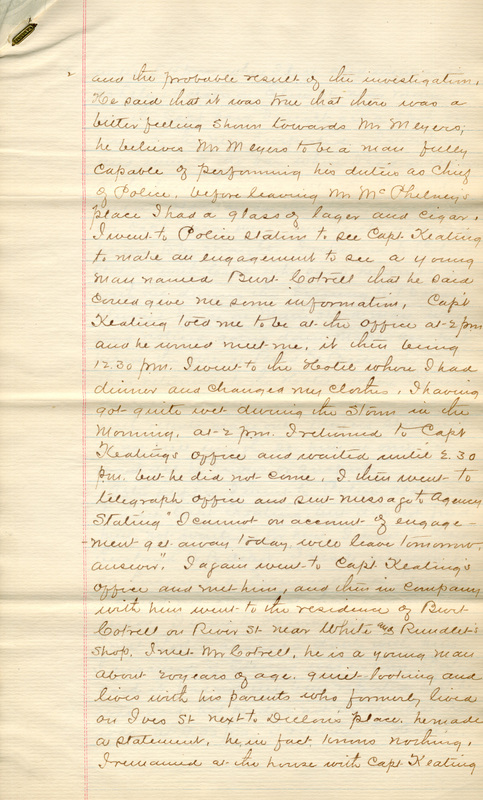 2 and the probable result of the investigation.
He said that it was true that there was a
bitter feeling shown towards Mr Meyers,
he believes Mr Meyers to be a man fully
capable of performing his duties as Chief
of Police. before leaving Mr McPhelney's
place I had a glass of lager and cigar.
I went to Police station to see Capt Keating
to make an engagement to see a young
man named Burt Cotrell that he said
could give me some information, Capt
Keating told me to be at the office at 2 pm
and he would meet me, it then being
12.30 pm. I went to the Hotel where I had
dinner and changed my clothes, I having
got quite wet during the storm in the
morning, at 2 pm. I returned to Capt
Keating's office and waited until 2.30
pm. but he did not come. I then went to
telegraph office and sent message to Agency
Stating "I cannot on account of engage-
-ment get away today, will leave tomorrow,
answer". I again went to Capt. Keating's
office and met him, and then in company
with him went to the residence of Burt
Cotrell on River St near White and Rundlet's
shop. I met Mr Cotrell, he is a young man
about 20 years of age. quiet looking and
lives with his parents who formerly lived
on Ives St next to place. he made
a statement, he in fact knows nothing.
I remained at the house with Capt Keating